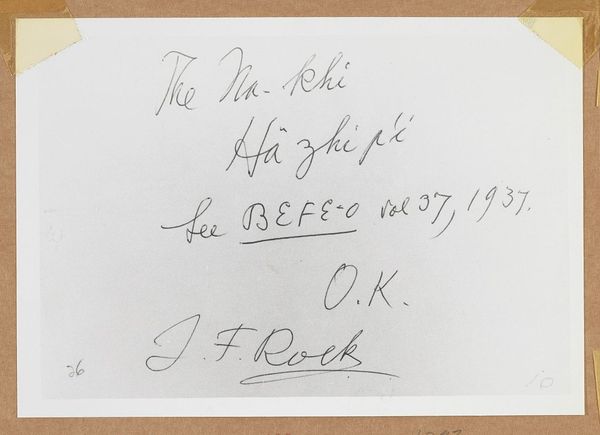 The Na-khi
Hä zhi p'i
See BEFE-O vol 37, 1937.
O.K.
J. F. Rock
26
10